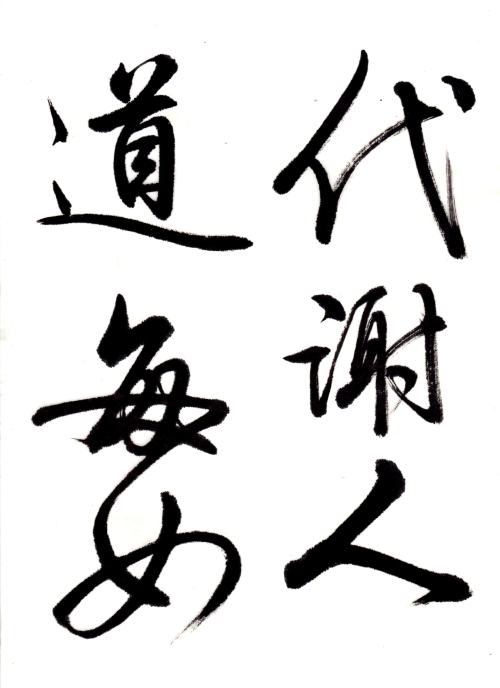 代謝人
道每如